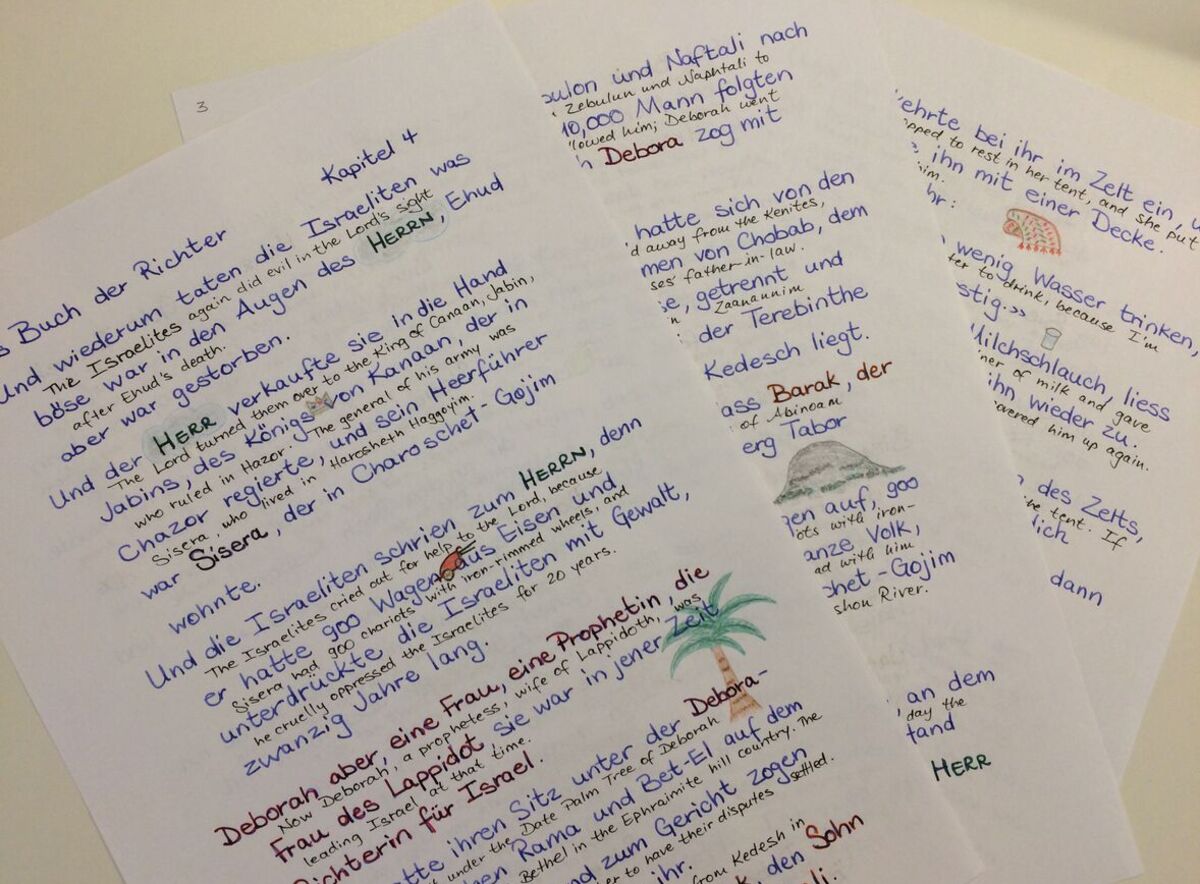 3
Kapitel 4
s Buch der Richter
Und wiederum taten die Israeliten was
The Israelites again did evil in the Lord's sight
böse war in den Augen des HERRN, Ehud
after Ehud's death.
aber war gestorben.
Und der HERR verkaufte sie in die Hand
The Lord turned them over to the King of Canaan, Jabin,
Jabins, des Königs von Kanaan, der in
who ruled in Hazor. The general of his army was
Chazor regierte, und sein Heerführer
Sisera, who lived in Harosheth Haggoyim.
war Sisera, der in Charoschet-Gojim
wohnte.
Und die Israeliten schrien zum HERRN, denn
The Israelites cried out for help to the Lord, because
er hatte 900 Wagen aus Eisen und
Sisera had 900 chariots with iron-rimmed wheels, and
unterdrückte die Israeliten mit Gewalt,
he cruelly oppressed the Israelites for 20 years.
zwanzig Jahre lang.
Deborah aber, eine Frau, eine Prophetin, die
Now Deborah, a prophetess, wife of Lappidoth, was
Frau des Lappidot sie war in jener Zeit
leading Israel at that time.
Richterin für Israel.
tte ihren Sitz unter der Debora-
t under the Date Palm Tree of Deborah
hen Rama und Bet-El auf dem
Bethel in the Ephraimite hill country. The
nd zum Gericht zogen
er to have their disputes settled.
ihr.
from Kedesh in
k, den Sohn
li.
bulon und Naftali nach
Zebulun und Naphtali to
10,000 Mann folgten
llowed him; Deborah went
h Debora zog mit
hatte sich von den
d away from the Kenites,
men von Chobab, dem
ses' father-in-law.
se, getrennt und
n Zaanannim
der Terebinthe
Kedesch liegt.
ass Barak, der
of Abinoam
erg Tabor
gen auf, 900
ots with iron-
anze Volk,
ad with him
chet-Gojim
shon River.
, an dem
day the
tand
HERR
kehrte bei ihr im Zelt ein, u
opped to rest in her tent, and she put
e ihn mit einer Decke.
him.
hr:
wenig Wasser trinken,
ter to drink, because I'm
stig.>>
Milchschlauch, liess
ner of milk and gave
ihn wieder zu.
overed him up again.
des Zelts,
he tent. If
lich
dann